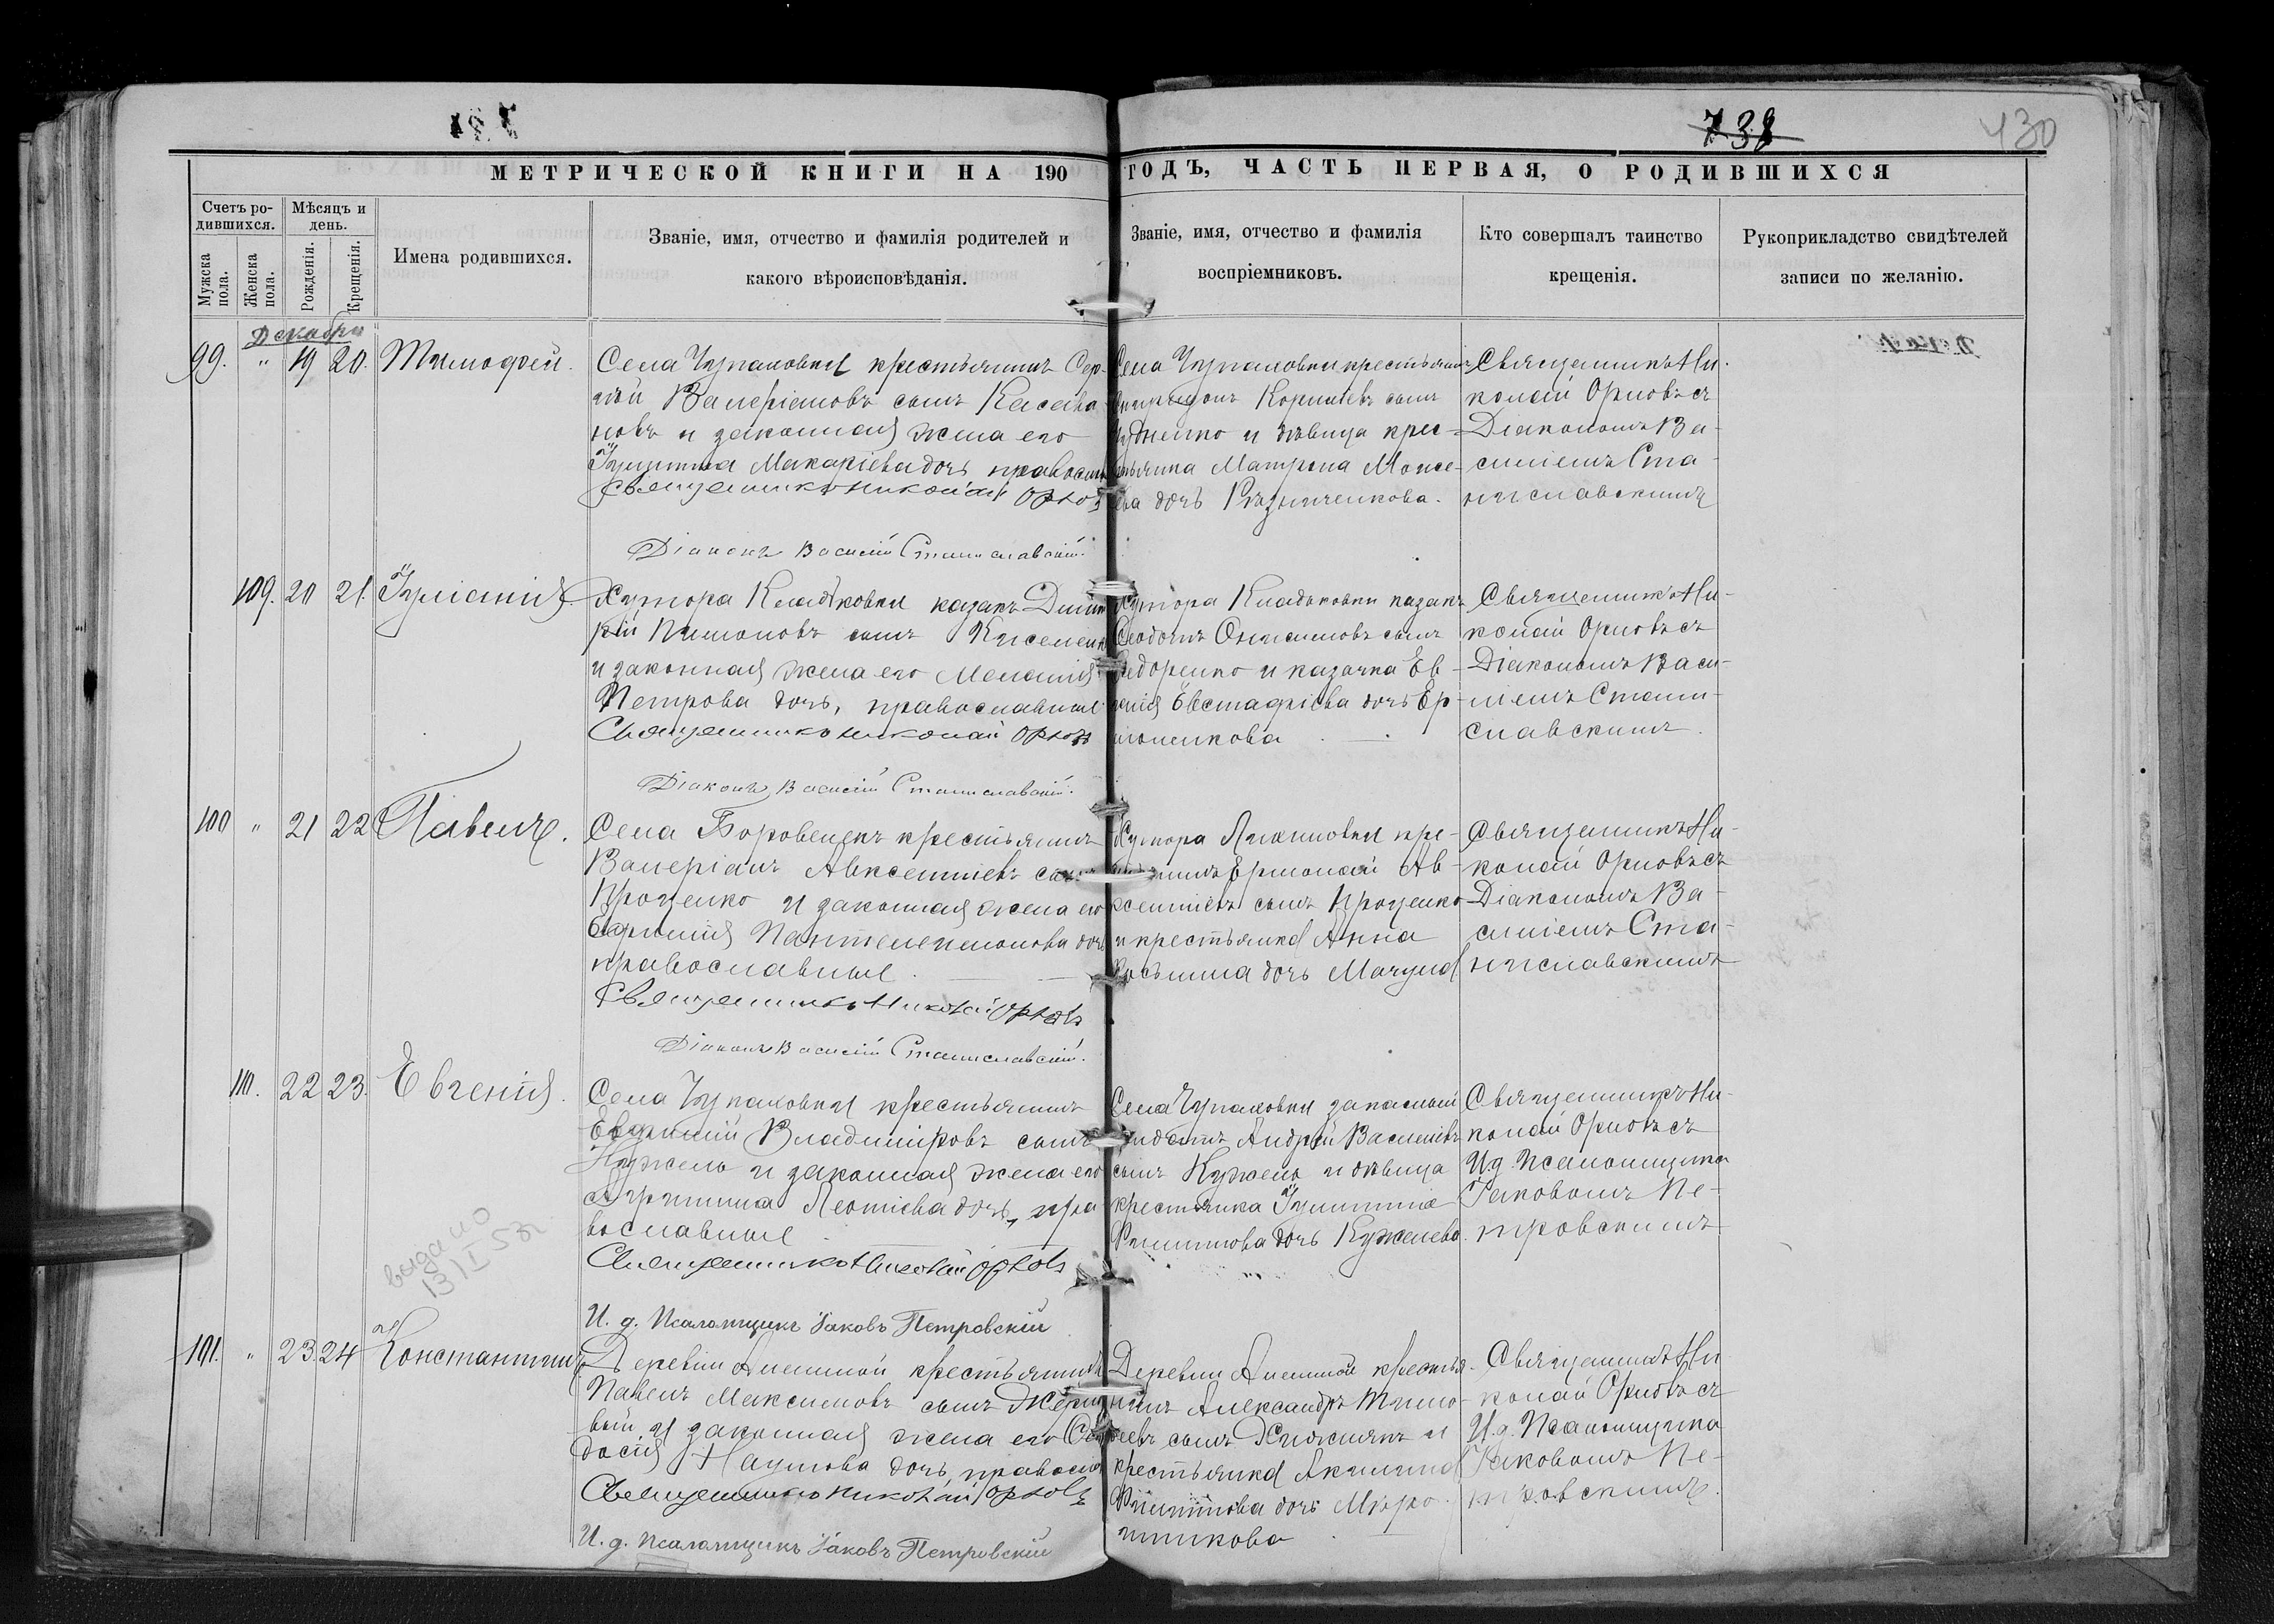 738
430
МЕТРИЧЕСКОЙ КНИГИ НА 190 ГОДЪ, ЧАСТЬ ПЕРВАЯ, О РОДИВШИХСЯ
Счетъ ро-
дившихся.
Мужска
пола.
Женска
пола.
Мѣсяцъ и
день.
Рожденія.
Крещенія.
Имена родившихся.
Званіе, имя, отчество и фамилія родителей и
какого вѣроисповѣданія.
Званіе, имя, отчество и фамилія
воспріемниковъ.
Кто совершалъ таинство
крещенія.
Рукоприкладство свидѣтелей
записи по желанію.
Декабрь
99. " 19 20. Тимофей.
Села Чупаховки крестьянинъ Сер-
гѣй Валеріановъ сынъ Касьва
новъ и законная жена его
Іустина Макаріева дочь православ
Священникъ Николай Орловъ
Діаконъ Василій Станиславскій.
Села Чупаховки крестьянинъ
Спиридонъ Корниліевъ сынъ
и дѣвица крес-
тьянка Матрона Моисе-
ева дочь
Священникъ Ни-
колай Орловъ съ
Діакономъ Ва-
силіемъ Ста-
ниславскимъ
109. 20 21. Іуліанія.
Хутора Кладьковки казакъ Дими
рій Пимоновъ сынъ Киселенко
и законная жена его Меланія
Петрова дочь, православные
Священникъ Николай Орловъ
Діаконъ Василій Станиславскій.
Хутора Кладьковки казакъ
Феодотъ Онисимовъ сынъ
Федоренко и казачка Ев-
Евстафіева дочь Ер-
моленкова
Священникъ Ни-
колай Орловъ съ
Діакономъ Васи-
ліемъ Стани-
славскимъ.
100 " 21 22 Павелъ.
Села Боровенекъ крестьянинъ
Валеріанъ Авксентіевъ сынъ
Проценко и законная жена его
Евфимія Пантелеимонова дочь
православные.
Священникъ Николай Орловъ
Діаконъ Василій Станиславскій.
Хутора Лукиновки кре-
стьянинъ Ермолай Ав-
ксентіевъ сынъ Проценко
и крестьянка Анна
Косьмина дочь
Священникъ Ни-
колай Орловъ съ
Діакономъ Ва-
силіемъ Ста-
ниславскимъ
110. 22 23. Евгенія.
Села Чупаховки крестьянинъ
Евфимій Владиміровъ сынъ
Кужель и законная жена его
Агрипина Леонтіева дочь, пра
вославные
Священникъ Николай Орловъ
И. д. Псаломщика Іаковъ Петровскій
Села Чупаховки запасный
Андрей Василіевъ
сынъ Кужель и дѣвица
крестьянка Іустина
Филиппова дочь Кужелева.
Священникъ Ни-
колай Орловъ съ
И.д. Псаломщика
Іаковомъ Пе-
тровскимъ
выдано
13/I 53г.
101. " 23. 24 Константинъ
Деревни Алешной крестьянинъ
Павелъ Максимовъ сынъ
вый и законная жена его Фео
досія Наумова дочь, православ
Священникъ Николай Орловъ
И. д. Псаломщика Іаковъ Петровскій
Деревни Алешной крестья-
нинъ Александръ Тимо-
феевъ сынъ Хижнякъ и
крестьянка Акилина
Филиппова дочь Миро-
шникова
Священникъ Ни
колай Орловъ съ
И.д. Псаломщика
Іаковомъ Пе-
тровскимъ.